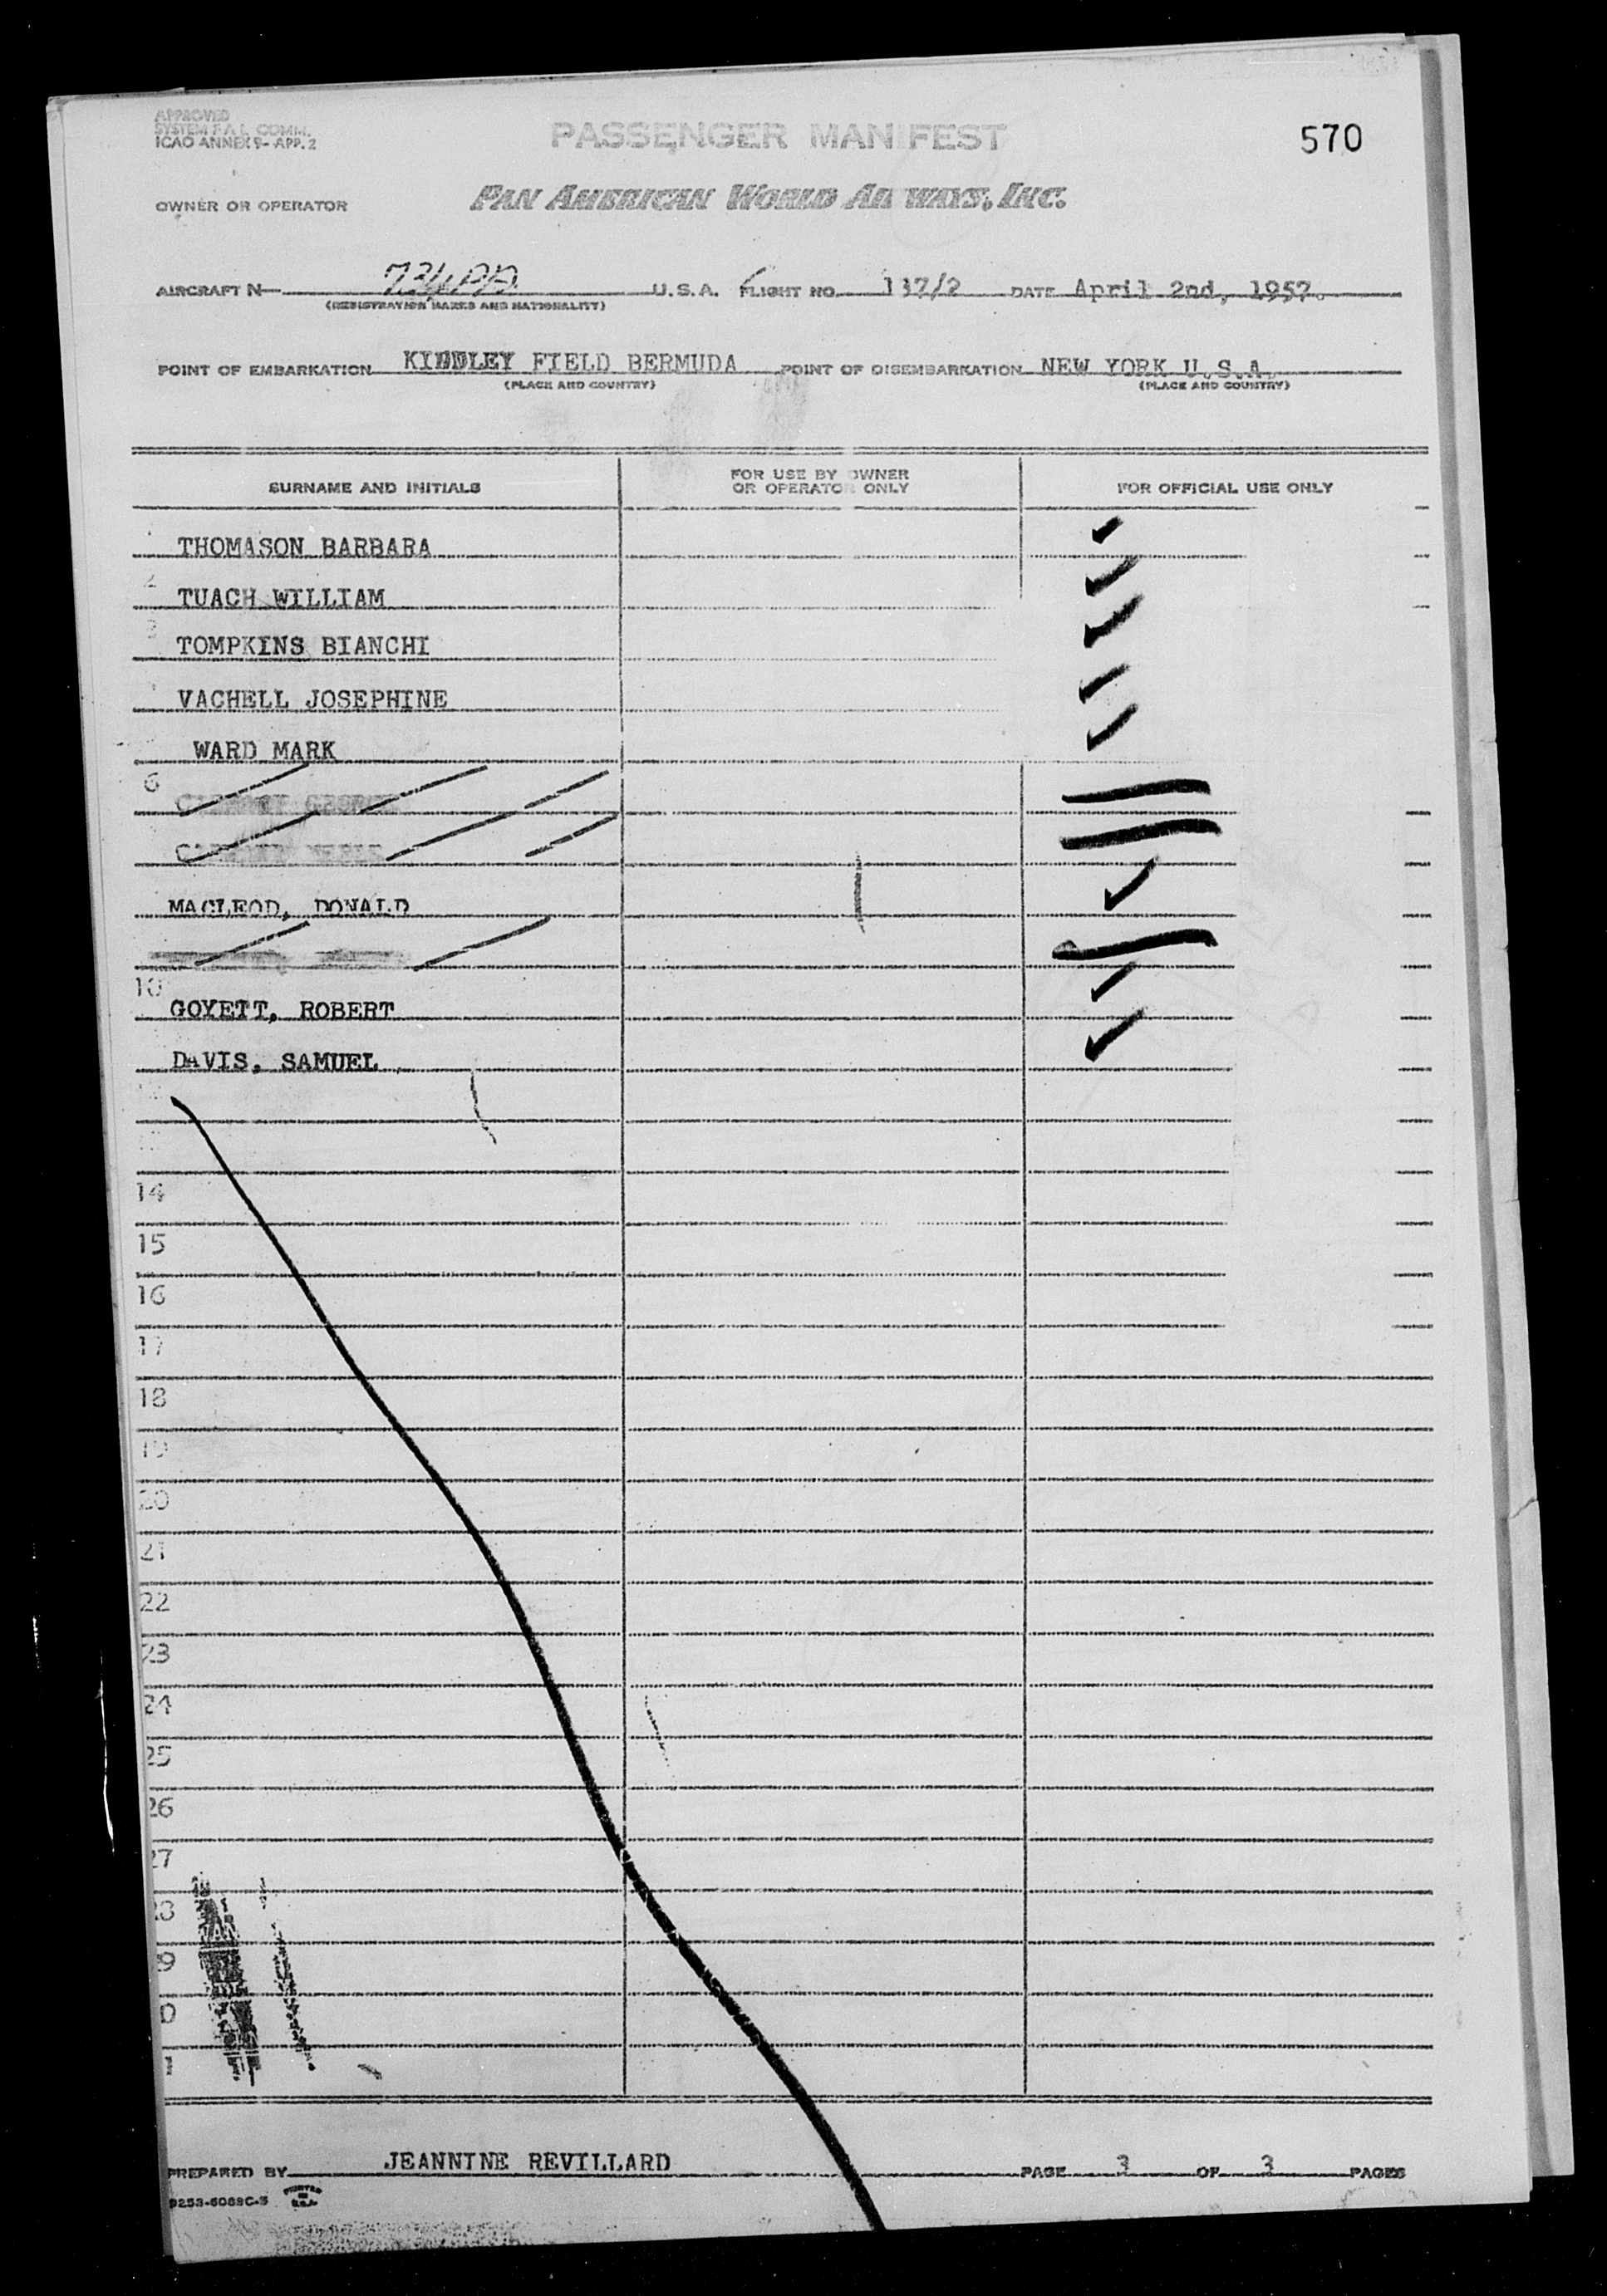 APPROVED
SYSTEM F A L COMM.
ICAO ANNEX 9- APP. 2
PASSENGER MANIFEST
570
OWNER OR OPERATOR PAN AMERICAN WORLD AIRWAYS, INC.
AIRCRAFT N U.S.A. FLIGHT NO. 137/2 DATE April 2nd, 1957.
(REGISTRATION MARKS AND NATIONALITY)
POINT OF EMBARKATION KINDLEY FIELD BERMUDA POINT OF DISEMBARKATION NEW YORK U.S.A.
(PLACE AND COUNTRY) (PLACE AND COUNTRY)
SURNAME AND INITIALS FOR USE BY OWNER OR OPERATOR ONLY FOR OFFICIAL USE ONLY
THOMASON BARBARA
2 TUACH WILLIAM
3 TOMPKINS BIANCHI
VACHELL JOSEPHINE
WARD MARK
6
MACLEOD, DONALD
10 GOYETT, ROBERT
DAVIS, SAMUEL
14
15
16
17
18
19
20
21
22
23
24
25
26
27
PREPARED BY JEANNINE REVILLARD PAGE 3 OF 3 PAGES
PRINTED IN U.S.A.